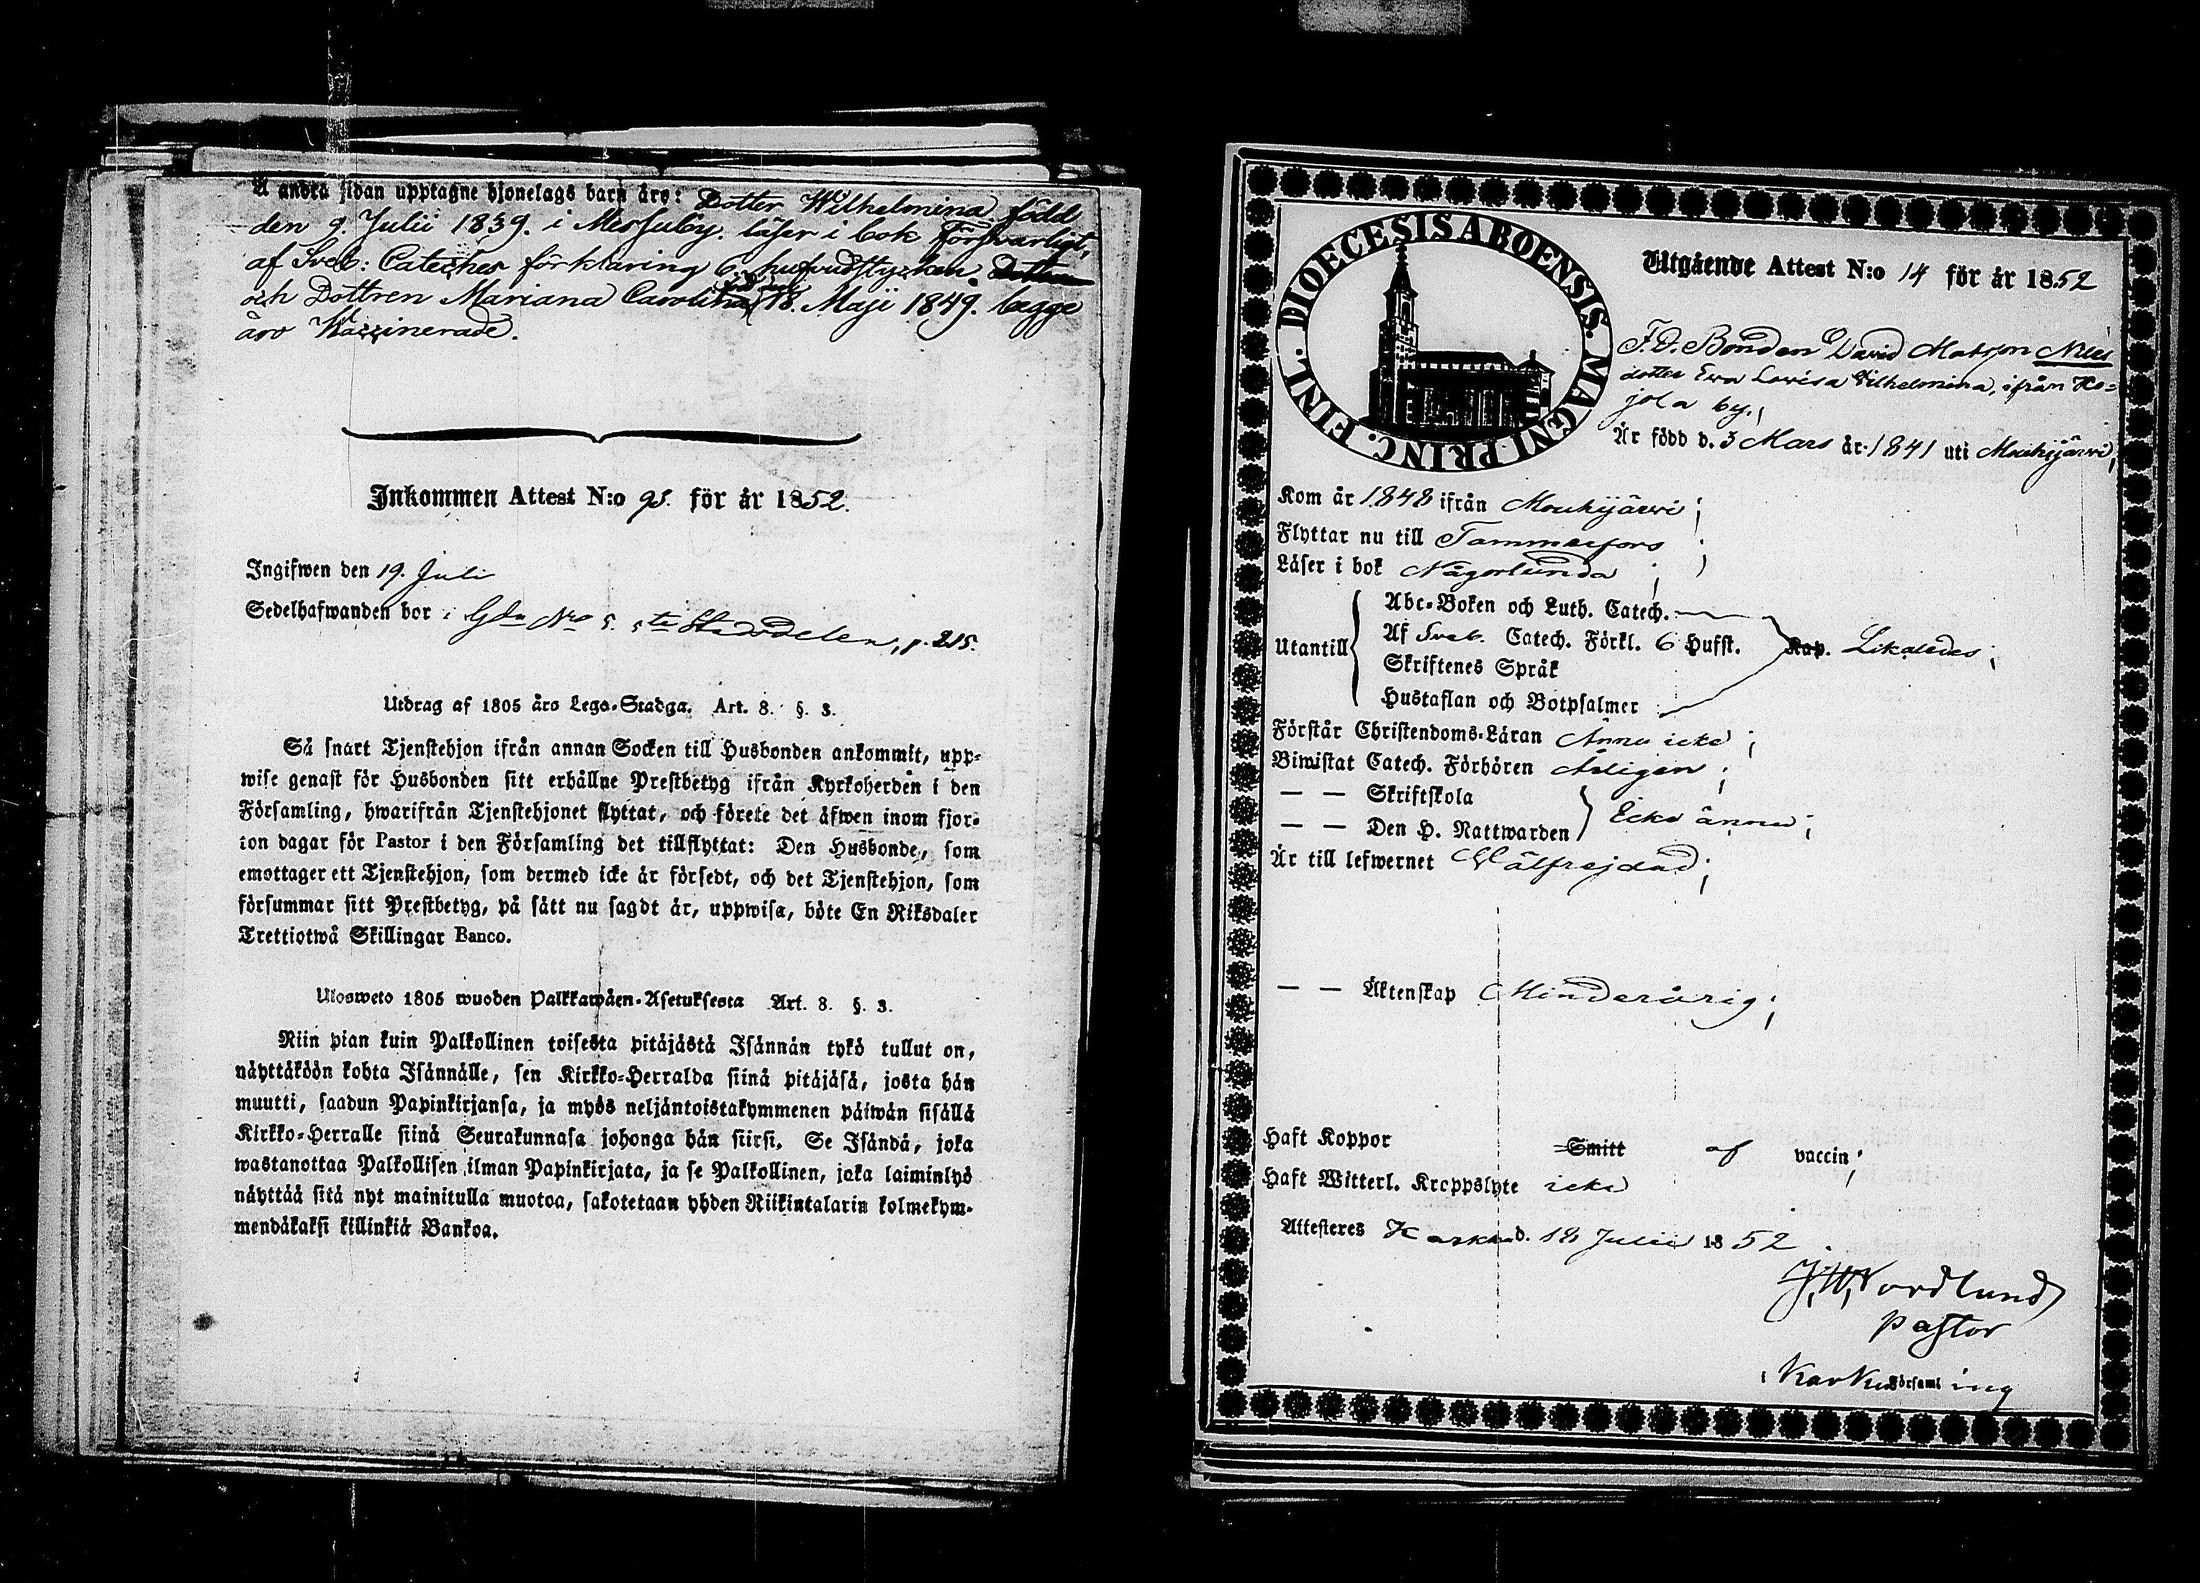 Å andra sidan upptagne hjonelags barn äro: Dotter Wilhelmina född
den 9. Julii 1839. i Messuby. läser i bok försvarligt,
af Sveb: Cateches förklaring 6. hufvudstycken.
och Dottren Mariana Carolina född den 18. Maji 1849. begge
äro Waccinerade.
Inkommen Attest N:o 98. för år 1852.
Ingifwen den 19. Juli
Sedelhafwanden bor i Gdn Nro 5. 5te Stadsdelen, p. 215.
Utdrag af 1805 års Lego-Stadga. Art. 8. §. 3.
Så snart Tjenstehjon ifrån annan Socken till Husbonden ankommit, upp-
wise genast för Husbonden sitt erhållne Prestbetyg ifrån Kyrkoherden i den
Församling, hwarifrån Tjenstehjonet flyttat, och förete det äfwen inom fjor-
ton dagar för Pastor i den Församling det tillflyttat: Den Husbonde, som
emottager ett Tjenstehjon, som dermed icke är försedt, och det Tjenstehjon, som
försummar sitt Prestbetyg, på sätt nu sagdt är, uppwisa, böte En Riksdaler
Trettiotwå Skillingar Banco.
Ulosweto 1805 wuoden Palkkawäen-Asetuksesta Art. 8. §. 3.
Niin pian kuin Palkollinen toisesta pitäjästä Isännän tykö tullut on,
näyttäköön kohta Isännälle, sen Kirkko-Herralda siinä pitäjäsä, josta hän
muutti, saadun Papinkirjansa, ja myös neljäntoistakymmenen päiwän sisällä
Kirkko-Herralle siinä Seurakunnasa johonga hän siirsi. Se Isändä, joka
wastanottaa Palkollisen ilman Papinkirjata, ja se Palkollinen, joka laiminlyö
näyttää sitä nyt mainitulla muotoa, sakotetaan yhden Riikintalarin kolmekym-
mendäkaksi killinkiä Bankoa.
DIOECESIS ABOENSIS. MAGNI PRINC. FINL.
Utgående Attest N:o 14 för år 1852
F.D. Bonden David Matsson Nies
dotter Eva Lovisa Vilhelmina, ifrån Ko-
jola by,
Är född d. 3 Mars år 1841 uti Mouhijärvi,
Kom år 1848 ifrån Mouhijärvi;
Flyttar nu till Tammerfors;
Läser i bok Någorlunda;
Utantill
Abc-Boken och Luth. Catech.
Af Sveb. Catech. Förkl. 6 Hufst. Kap. Likaledes;
Skriftenes Språk
Hustaflan och Botpsalmer
Förstår Christendoms-Läran Ännu icke;
Biwistat Catech. Förhören Årligen;
— — Skriftskola
— — Den H. Nattwarden Icke ännu;
Är till lefwernet Wälfrejdad;
— — Äktenskap Minderårig;
Haft Koppor Smitt af vaccin;
Haft Witterl. Kroppslyte icke
Attesteres Karku d. 18 Julii 1852
J.W. Nordlund
Pastor
i Karku Församling